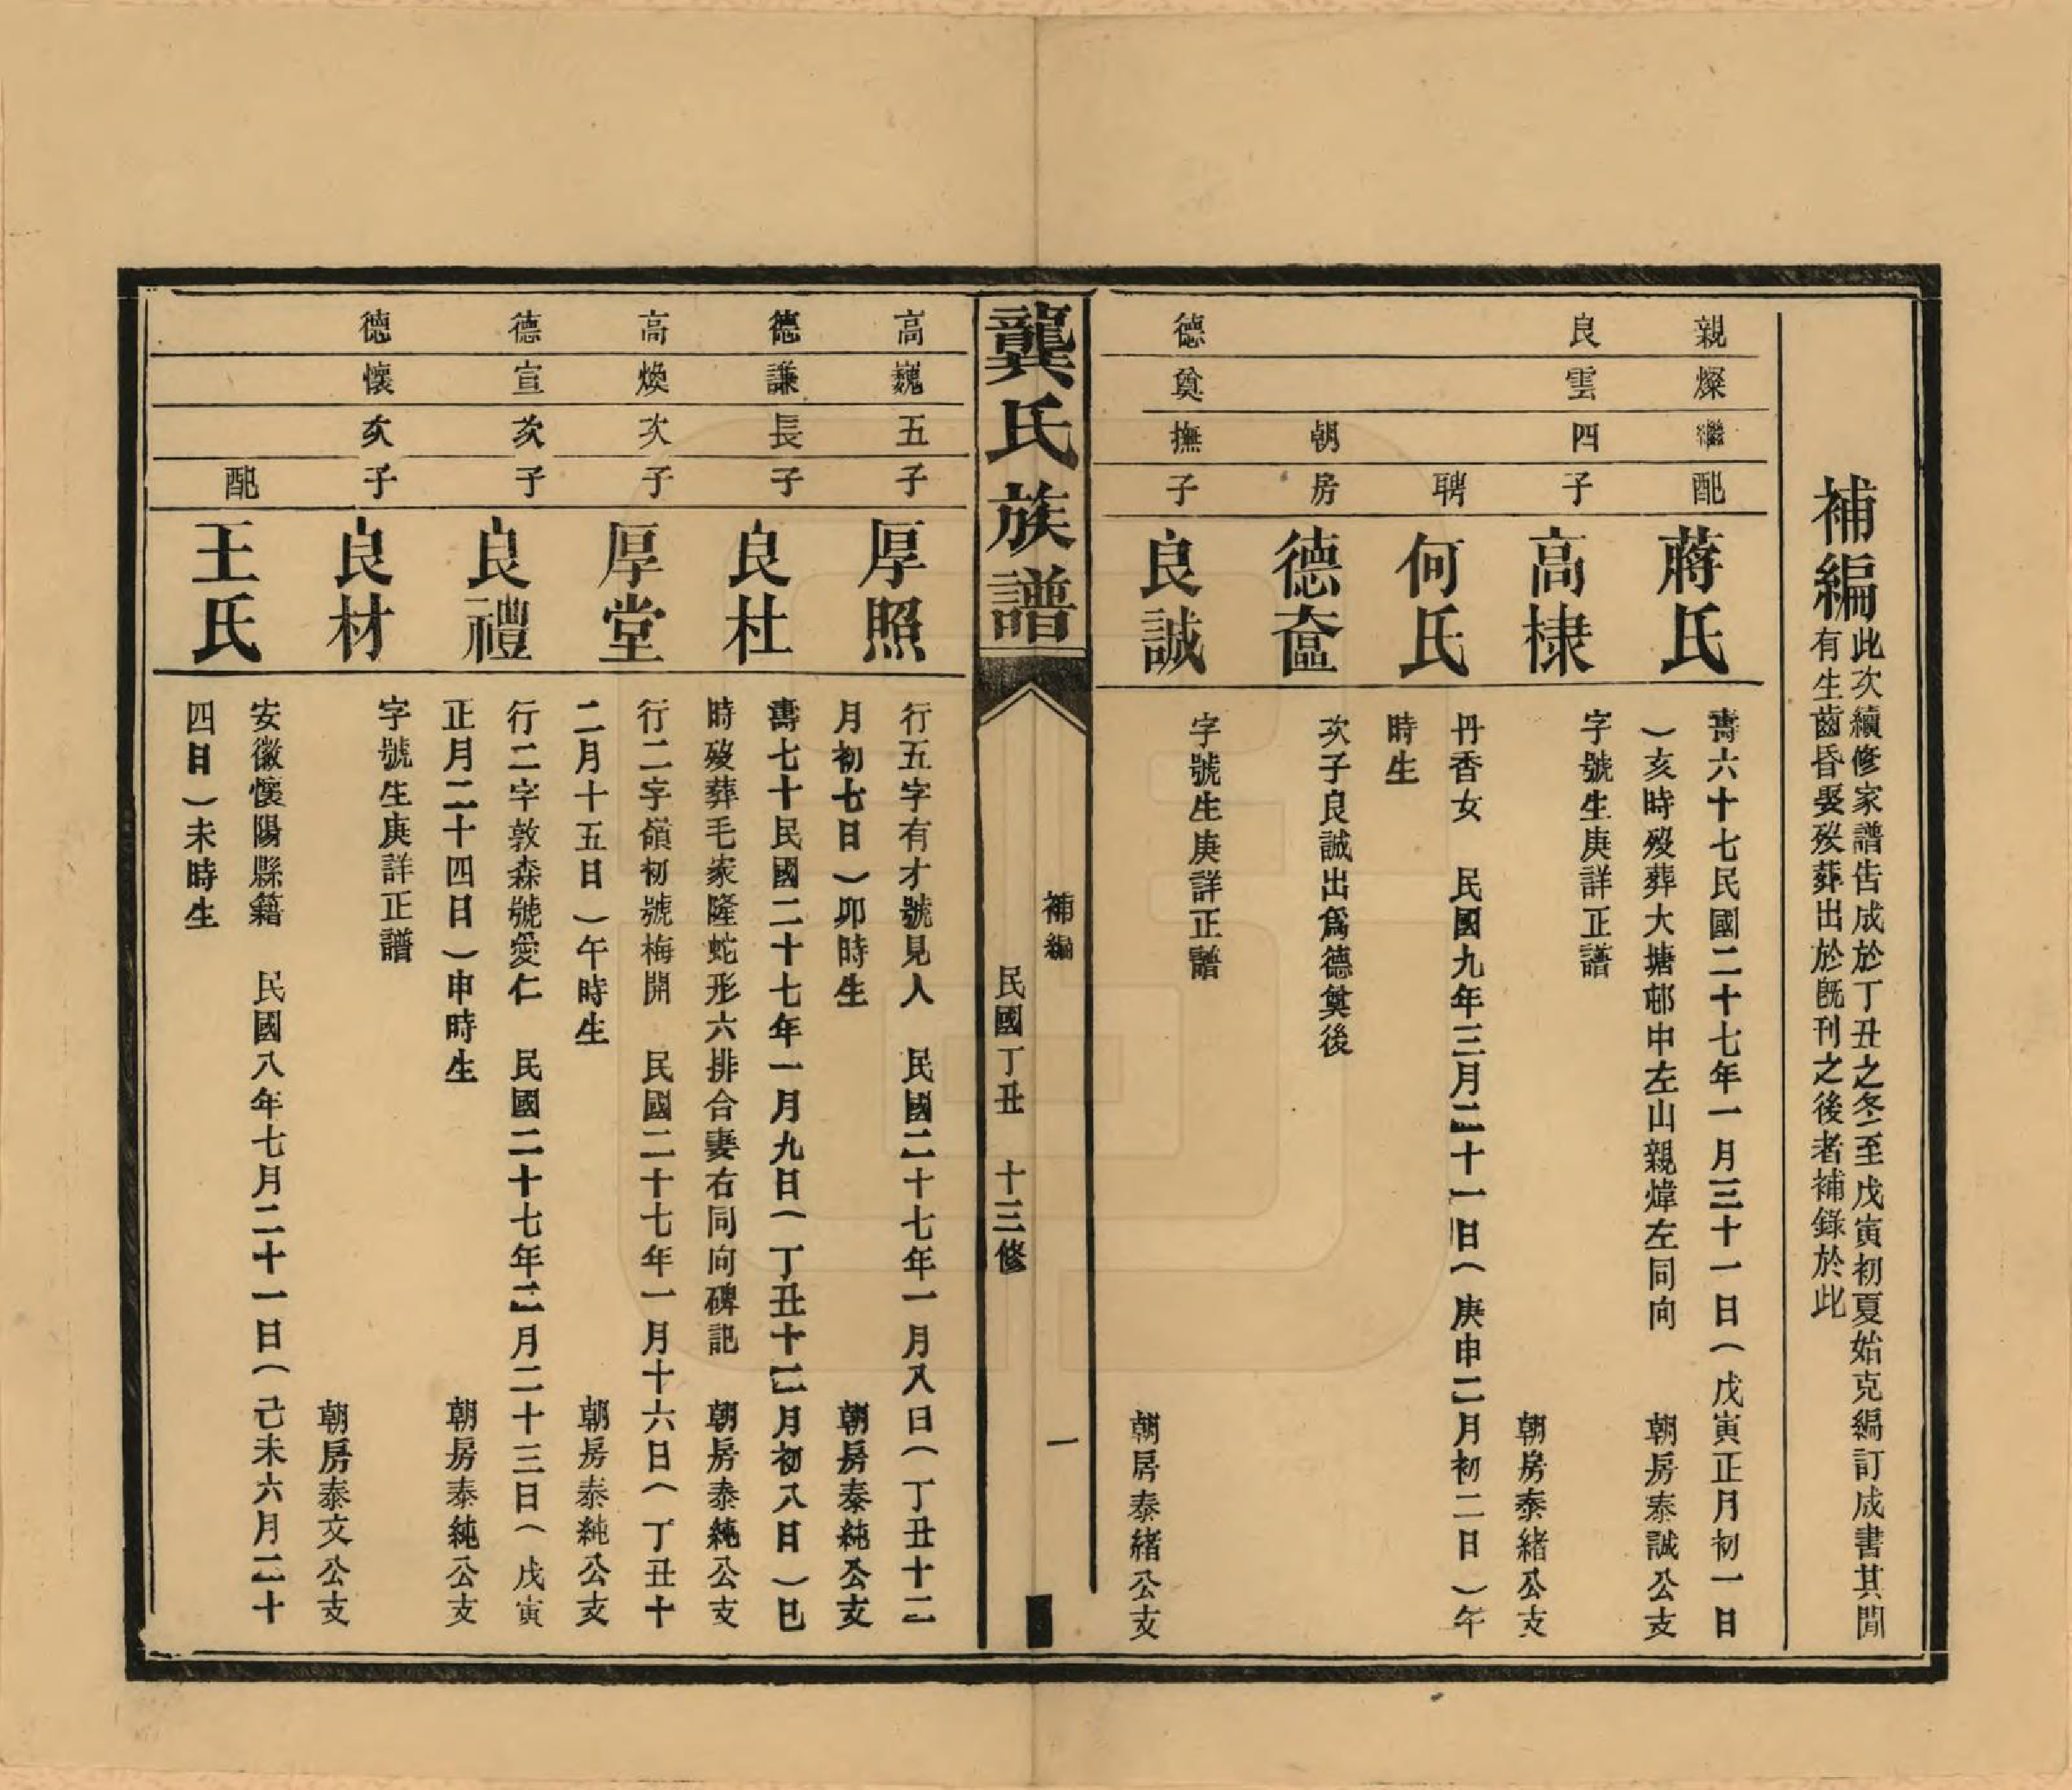 補編
此次續修家譜告成於丁丑之冬至戊寅初夏始克編訂成書其間
有生齒昏娶歿葬出於既刊之後者補錄於此
親燦繼配
蔣氏
壽六十七民國二十七年一月三十一日（戊寅正月初一日
）亥時歿葬大塘邨中左山親煒左同向　朝房泰誠公支
良雲四子
高棣
字號生庚詳正譜
朝房泰緒公支
聘
何氏
丹香女　民國九年三月二十一日（庚申二月初二日）午
時生
朝房
德奩
次子良誠出爲德奠後
德奠撫子
良誠
字號生庚詳正譜
朝房泰緒公支
龔氏族譜
補編
一
民國丁丑　十三修
高巍五子
厚照
行五字有才號見人　民國二十七年一月八日（丁丑十二
月初七日）卯時生　朝房泰純公支
德謙長子
良杜
壽七十民國二十七年一月九日（丁丑十二月初八日）巳
時歿葬毛家隆蛇形六排合妻右同向碑記　朝房泰純公支
高煥次子
厚堂
行二字嶺初號梅開　民國二十七年一月十六日（丁丑十
二月十五日）午時生　朝房泰純公支
德宣次子
良禮
行二字敦森號愛仁　民國二十七年二月二十三日（戊寅
正月二十四日）申時生　朝房泰純公支
德懷次子
良材
字號生庚詳正譜
朝房泰文公支
配
王氏
安徽懷陽縣籍　民國八年七月二十一日（己未六月二十
四日）未時生